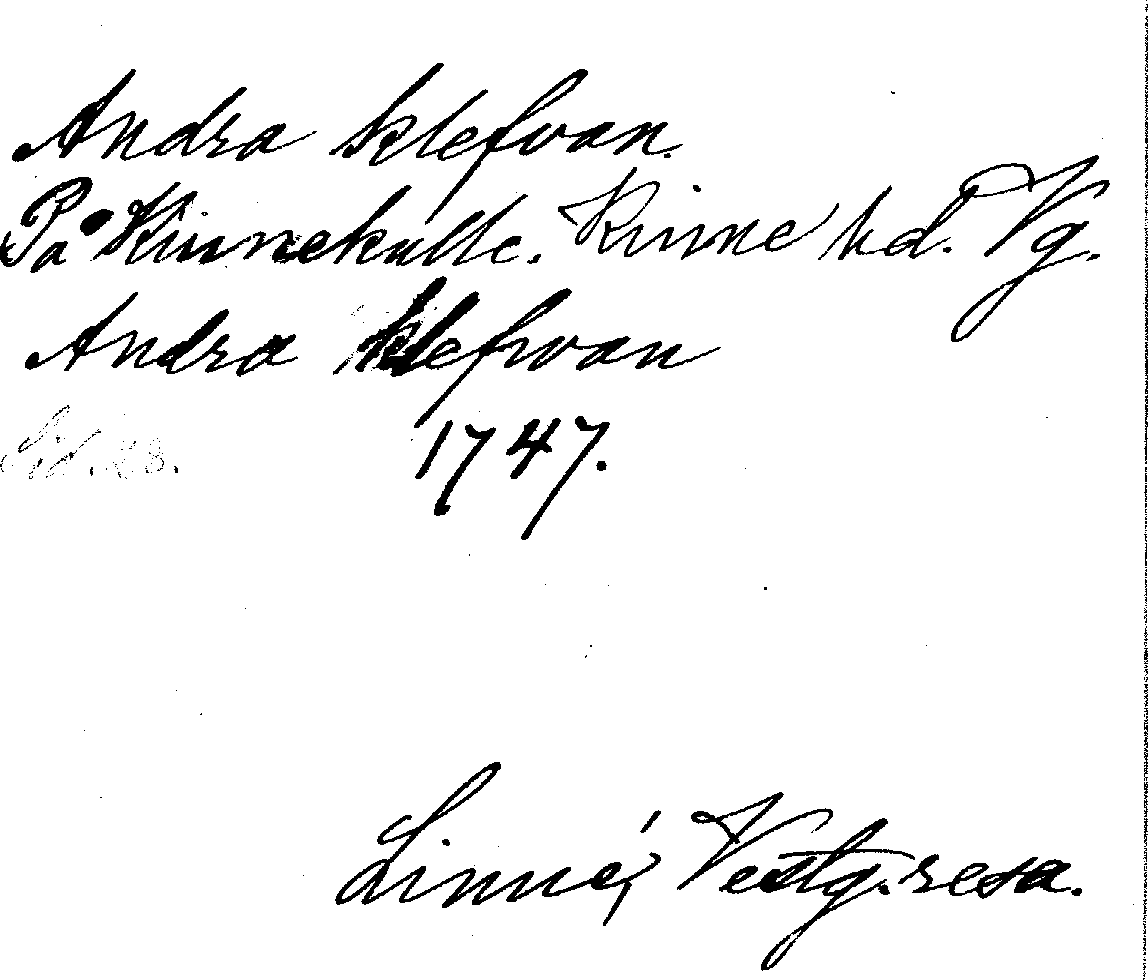 Andra klefvan.
På Kinnekulle. Kinne hd. Vg.
Andra klefwan
1747.
Sid. 28.
Linné, Vestg. resa.